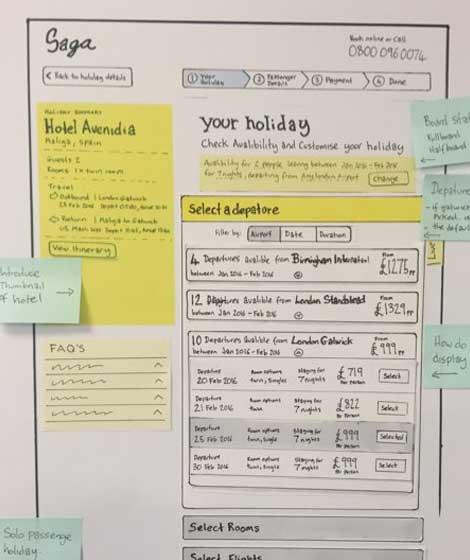 Saga
Book online or Call
0800 096 0074
< Back to holiday details
1 Your Holiday
2 Passenger Details
3 Payment
4 Done
HOLIDAY SUMMARY
Hotel Avenidia
Malaga, Spain
Guests 2
Rooms 1x twin room
Travel
Outbound | London Gatwick
Return | Malaga to Gatwick
View Itinerary
FAQ's
Your holiday
Check Avalibility and Customise your holiday
Availability for 2 people leaving between Jan 2016 - Feb 2016
for 7 nights, departing from Any london Airport
Change
Select a depatore
Filter by: Airport Date Duration
4 Departures Avalible from Birmigham Internatonal
between Jan 2016 - Feb 2016
From
£1275 PP
12 Departures Avalible from London Standstead
between Jan 2016 - Feb 2016
From
£1329 PP
10 Departures Avalible from London Gatwick
between Jan 2016 - Feb 2016
From
£999 PP
Departure
20 Feb 2016
Room options
twin, singles
Staying for
7 nights
£719
Per person
Select
Departure
21 Feb 2016
Room options
twin
Staying for
7 nights
£822
Per person
Select
Departure
25 Feb 2016
Room options
twin, single
Staying for
7 nights
£999
Per person
Selected
Departure
30 Feb 2016
Room options
twin, single
Staying for
7 nights
£999
Per person
Select
Select Rooms
Select Flights
Board stat
Fullboard
Half board
Depature
- if gatwick
the defau
Introduce
Thumbnail
of hotel
How do
display
Solo passenge
holiday